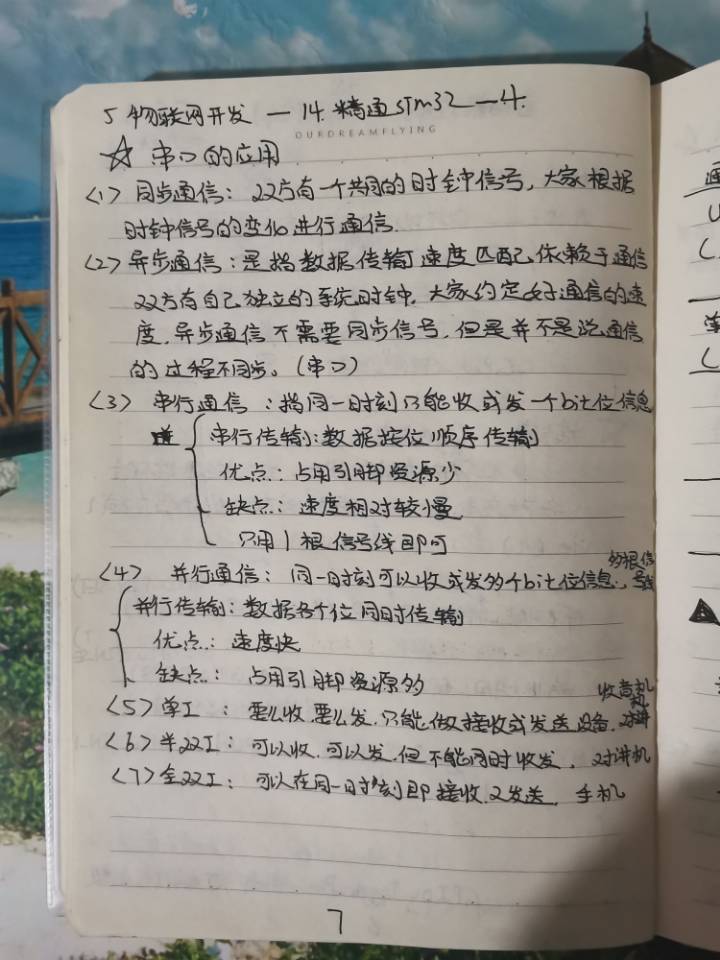 5 物联网开发 — 14.精通STM32 —4.
OURDREAMFLYING
☆ 串口的应用
<1> 同步通信：双方有一个共同的时钟信号，大家根据
时钟信号的变化进行通信.
<2> 异步通信：是指数据传输速度匹配依赖于通信
双方有自己独立的系统时钟，大家约定好通信的速
度，异步通信不需要同步信号，但是并不是说通信
的过程不同步。（串口）
<3> 串行通信：指同一时刻只能收或发一个bit位信息
串行传输：数据按位顺序传输
优点：占用引脚资源少
缺点：速度相对较慢
只用1根信号线即可
<4> 并行通信：同一时刻可以收或发多个bit位信息，多根信
号线
并行传输：数据各个位同时传输
优点：速度快
缺点：占用引脚资源多
<5> 单工：要么收，要么发，只能做接收或发送设备，收音机
<6> 半双工：可以收，可以发，但不能同时收发，对讲机
<7> 全双工：可以在同一时刻即接收，又发送，手机
7